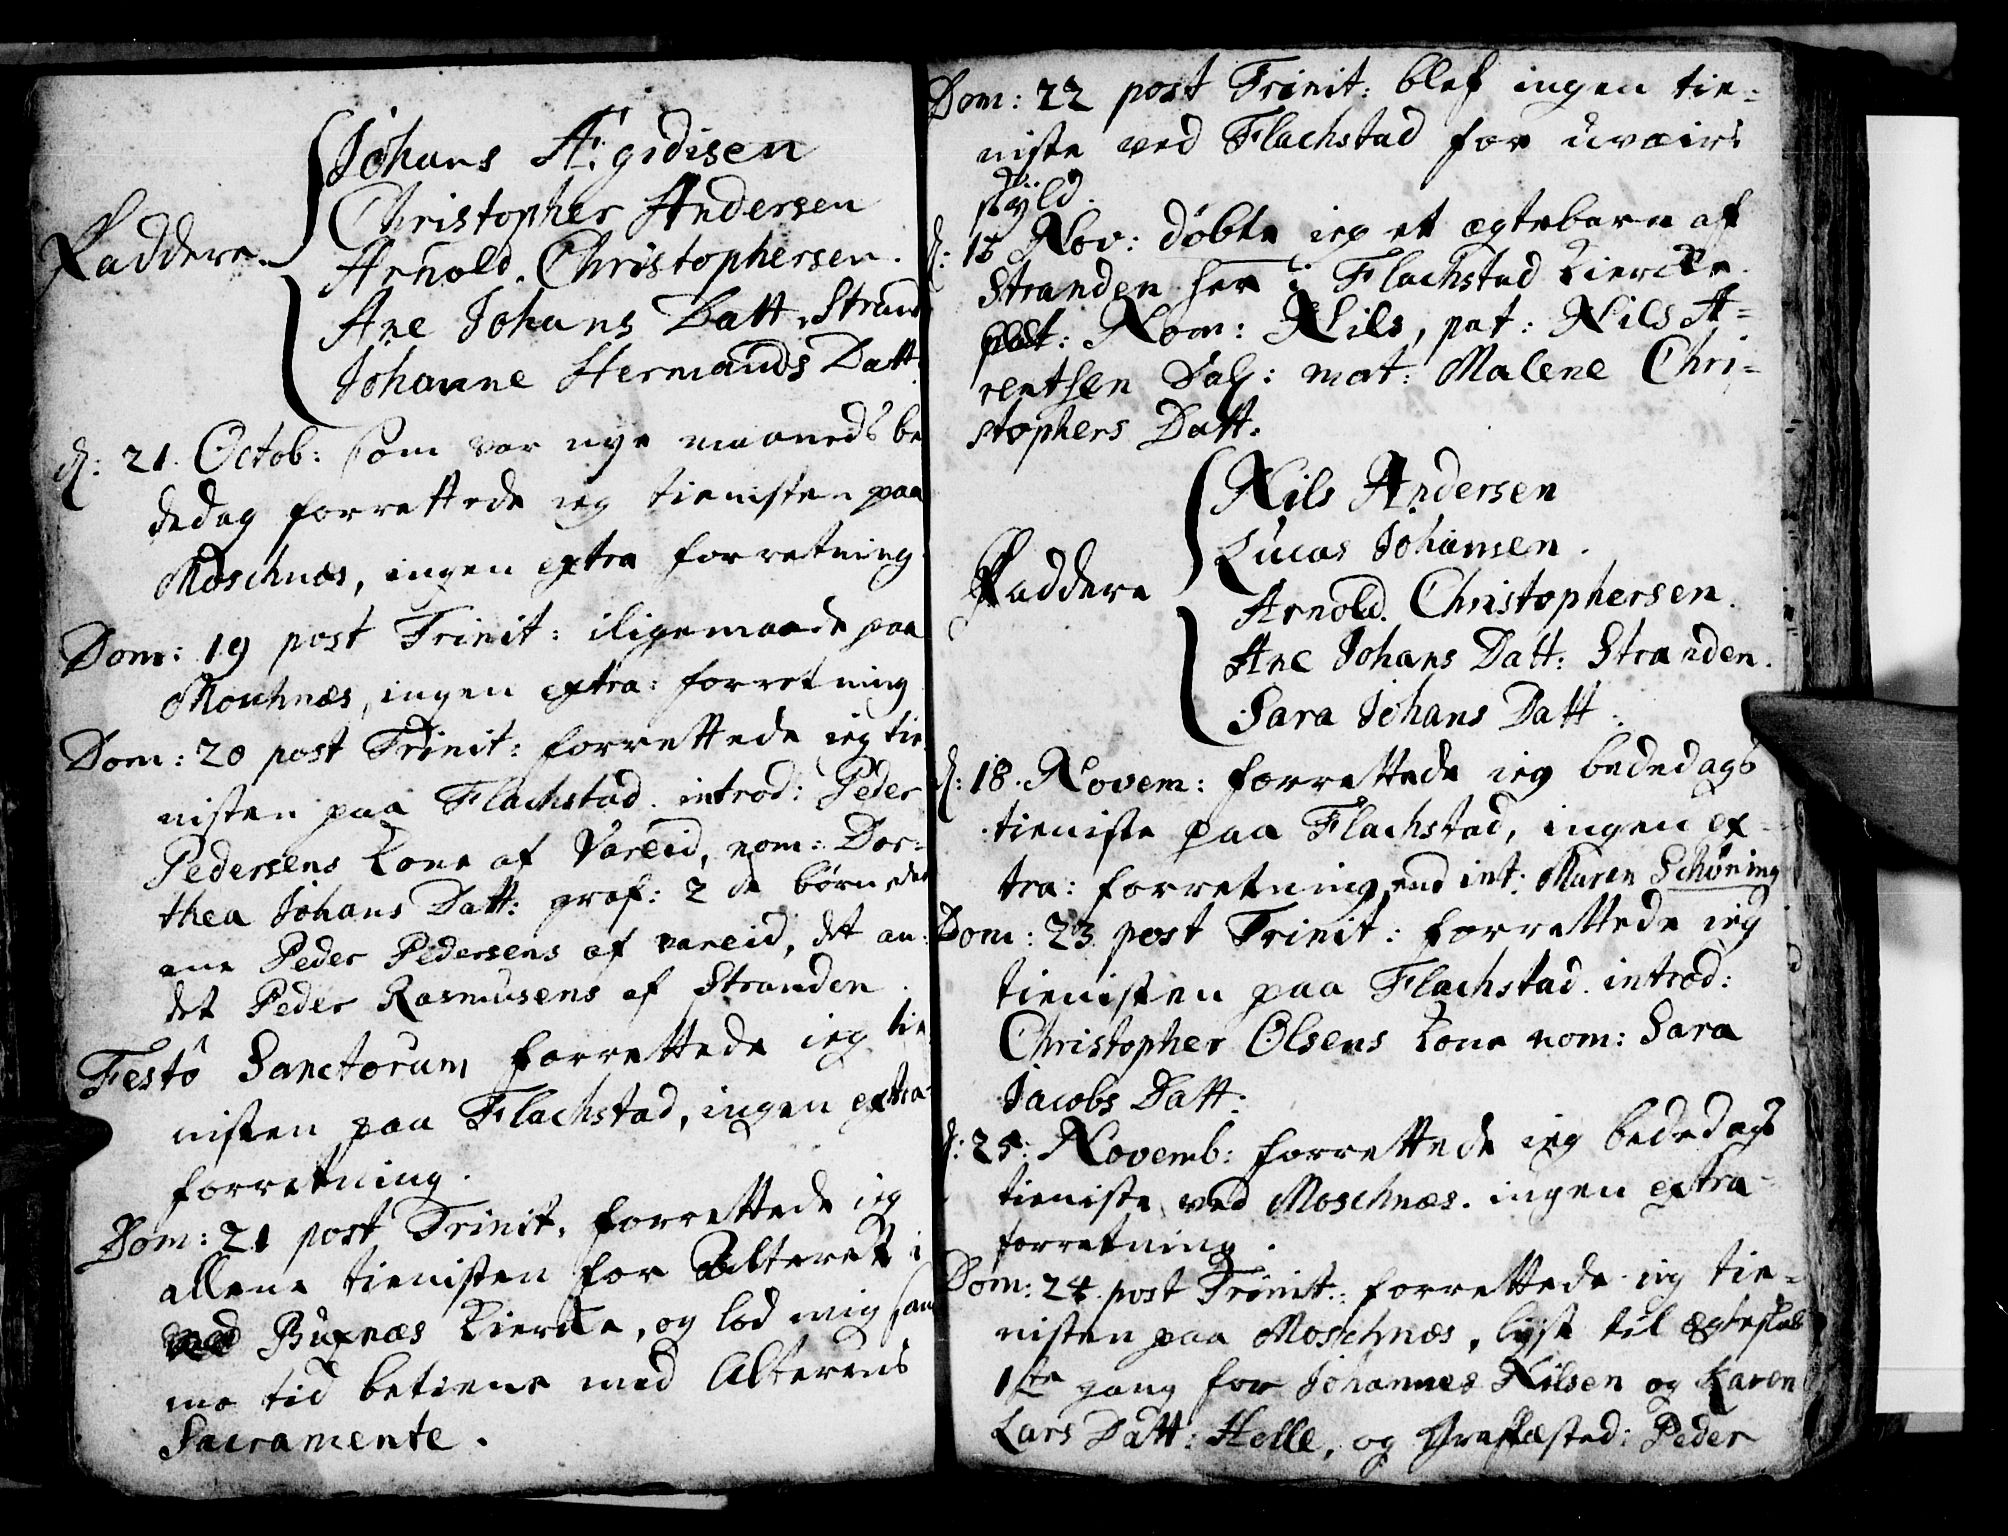 Johans Ægidisen
Christopher Andersen
Faddere
Arnold Christophersen.
Ane Johans Datt. Strand
Johanne Hermands Datt.
d: 21. Octob: som var nye maaneds be
dedag forrettede ieg tienisten paa
Moschnæs, ingen extra forretning
Dom: 19 post Trinit: iligemaade paa
Moschnæs, ingen extra: forretning
Dom: 20 post Trinit: forrettede ieg tie
nisten paa Flachstad. introd: Peder
Pedersens Kone af Vareid, nom: Dor=
thea Johans Datt: graf: 2 de børn det
ene Peder Pedersens af vareid, det an:
det Peder Rasmusens af Stranden.
Festo Sanctorum forrettede ieg tie
nisten paa Flachstad, ingen extra
forretning.
Dom: 21 post Trinit. forrettede ieg
allene tienisten for Alteret i
Buxnæs Kiercke, og lod mig sam
me tid betiene med Alterens
Sacramente.
Dom: 22 post Trinit: blef ingen tie=
niste ved Flachstad for uvæirs
skyld.
d: 15 Nov: døbte ieg et ægtebarn af
Stranden her i Flachstad Kiercke.
Nom: Nils, pat: Nils A=
rentsen Dal: mat: Malene Chri=
stophers Datt.
Nils Andersen
Lucas Johansen.
Faddere
Arnold Christophersen.
Ane Johans Datt: Stranden.
Sara Johans Datt.
d: 18. Novem: forrettede ieg bededags
tieniste paa Flachstad, ingen ex=
tra: forretning, end int: Maren Schøning
Dom: 23 post Trinit: forrettede ieg
tienisten paa Flachstad. introd:
Christopher Olsens Kone nom: Sara
Jacobs Datt:
d: 25. Novemb: forrettede ieg bededags
tieniste ved Moschnæs. ingen extra
forretning.
Dom: 24 post Trinit: forrettede ieg tie=
nisten paa Moschnæs, lyst til ægteskab
1ste gang for Johannes Nilsen og Karen
Lars Datt: Helle, og Græffæsted: Peder